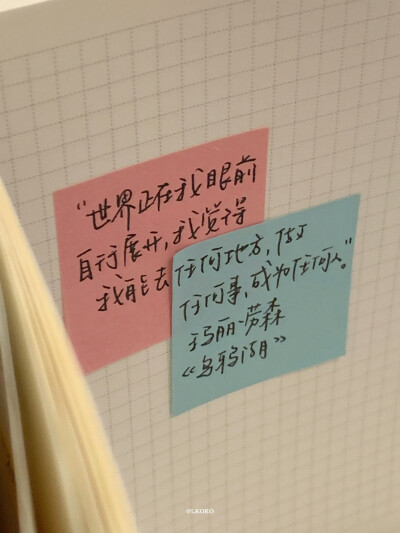 “世界正在我眼前
自行展开，我觉得
我能去任何地方，做
任何事，成为任何人。”
玛丽·劳森
《乌鸦湖》
@LKOKO